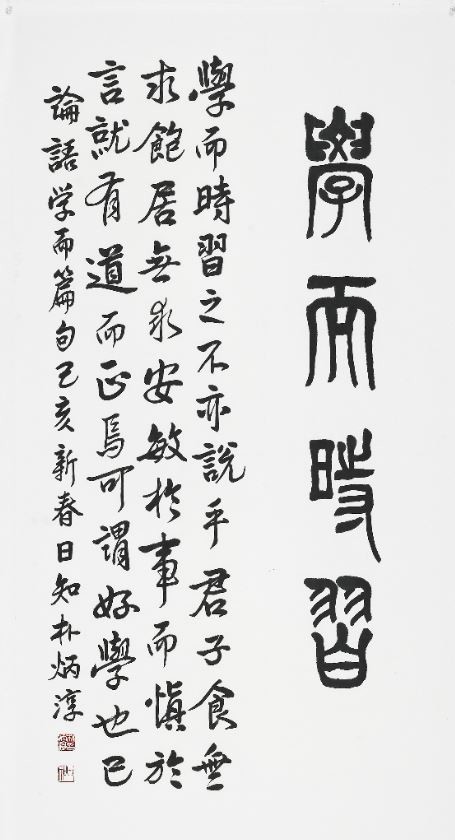 學而時習
學而時習之不亦說乎君子食無
求飽居無求安敏於事而慎於
言就有道而正焉可謂好學也已
論語学而篇句己亥新春日知朴炳淳